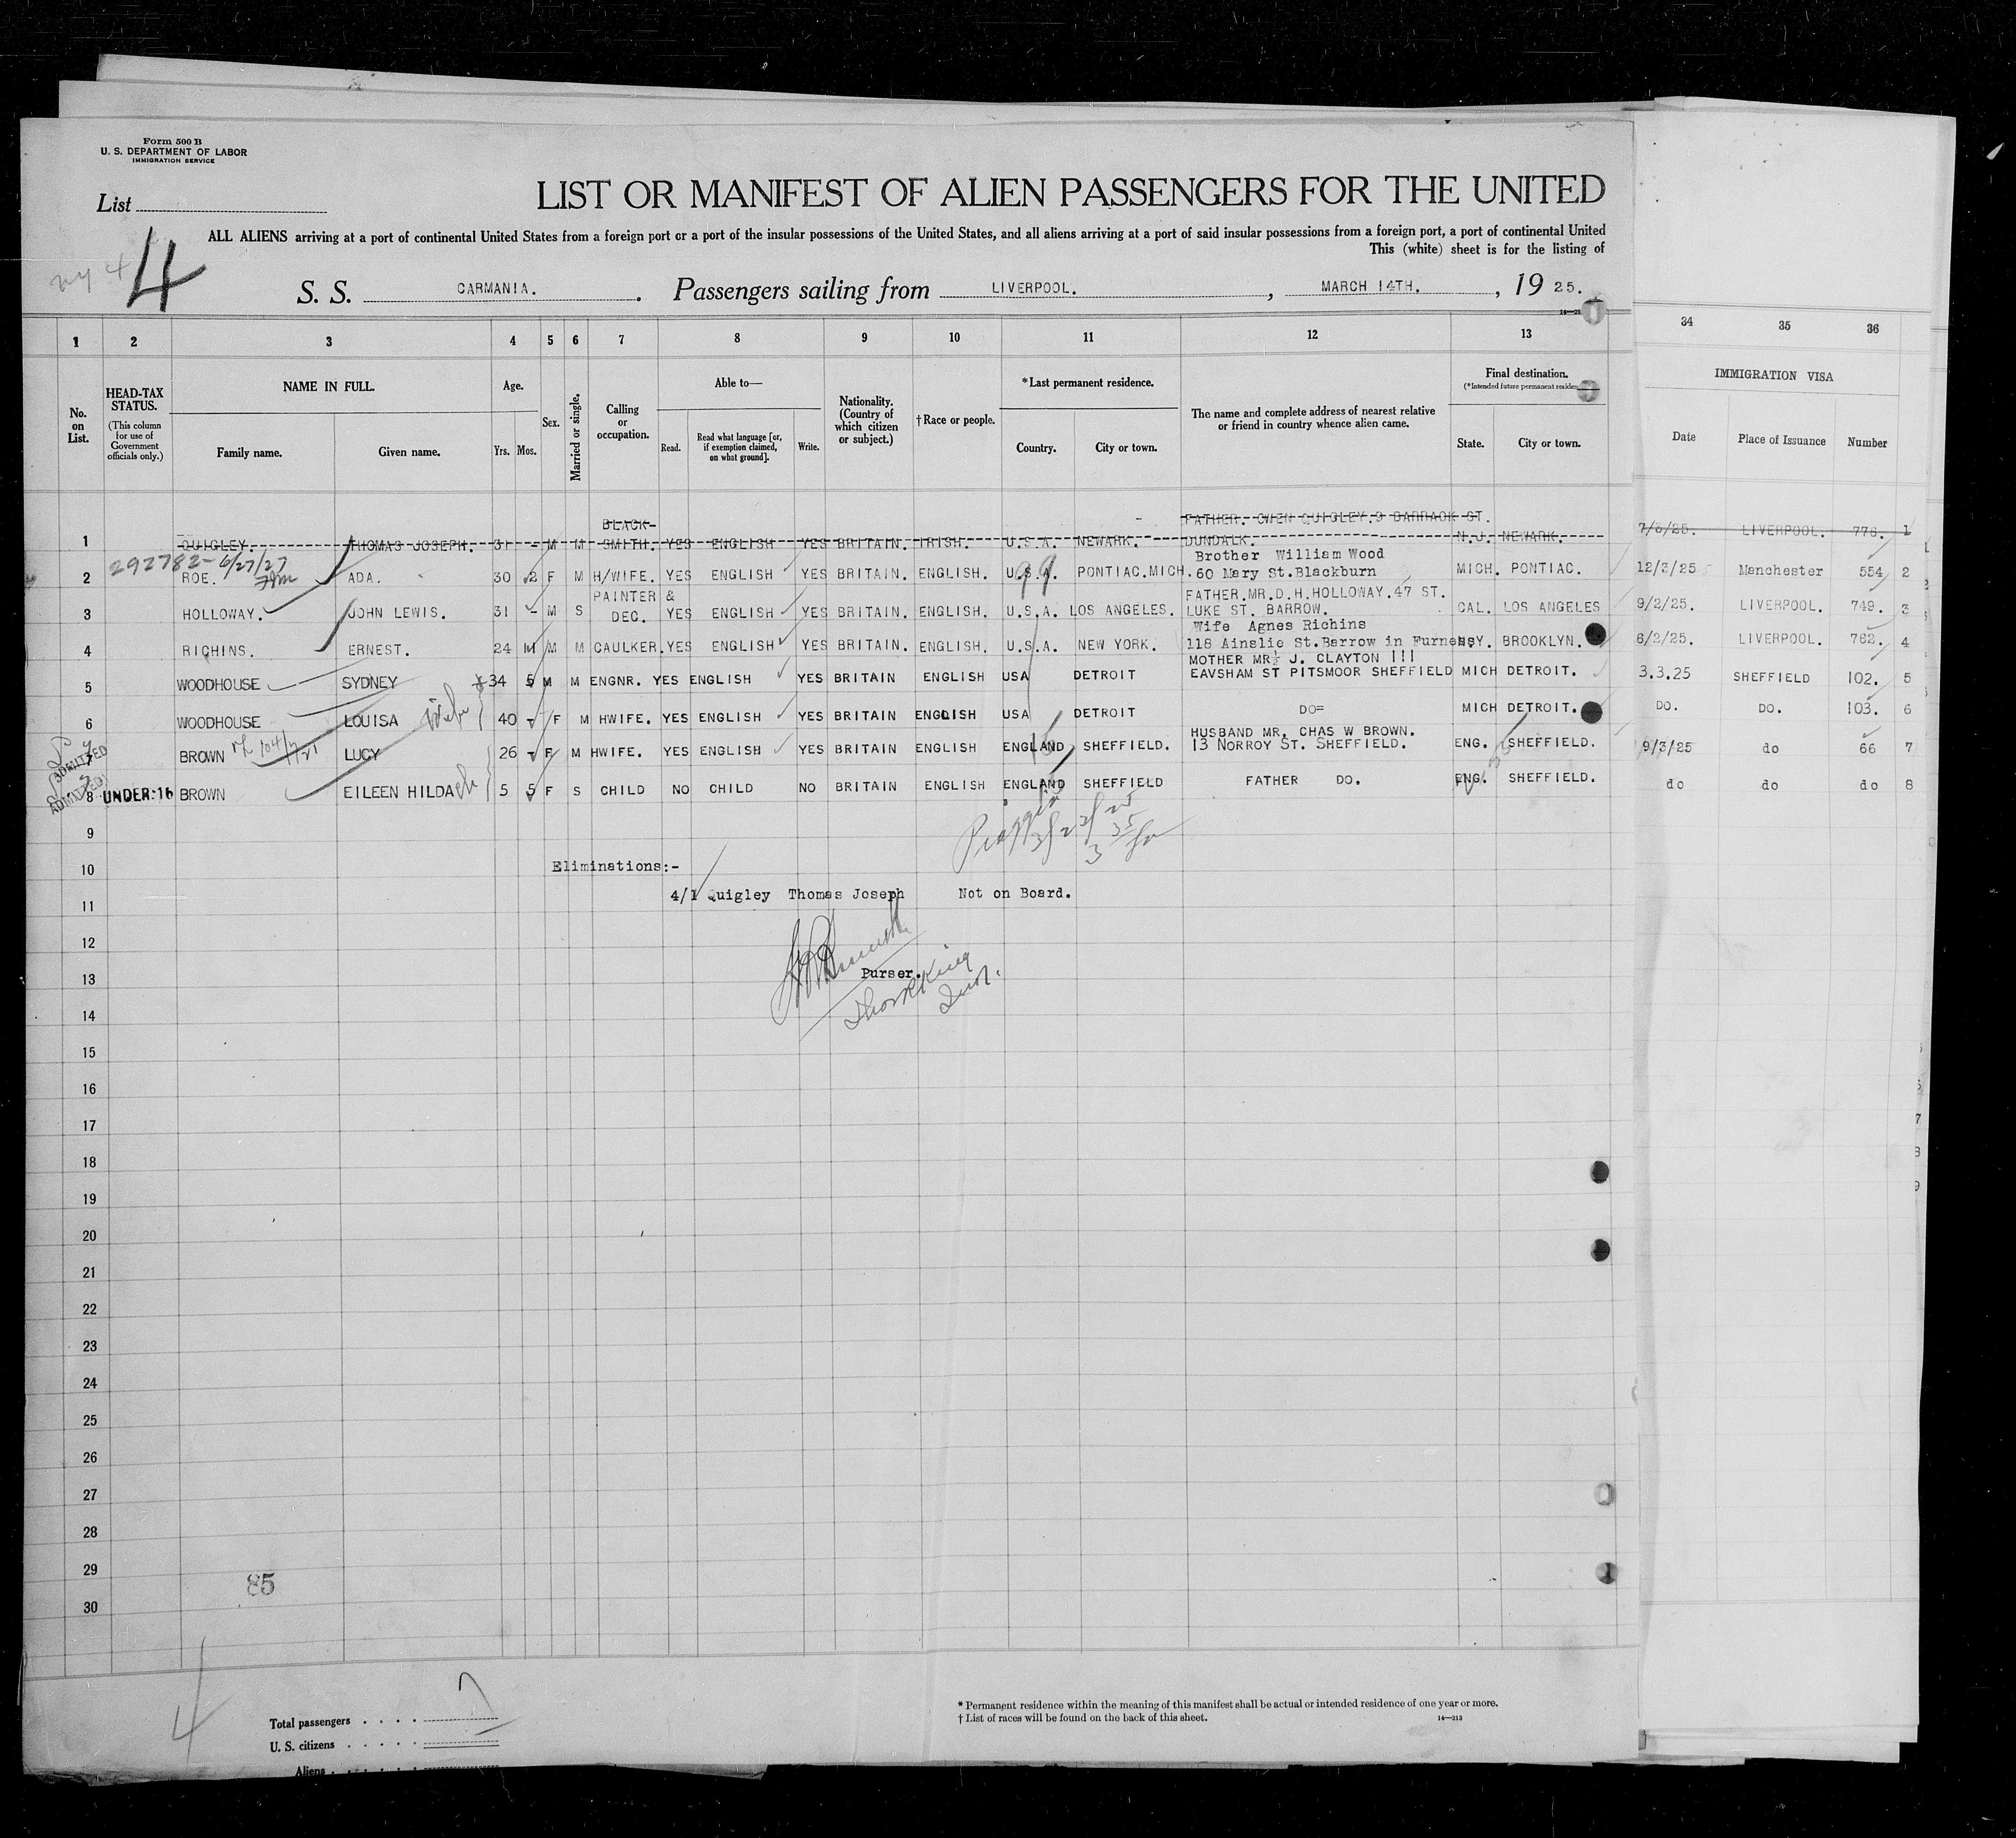 Form 500 B
U. S. DEPARTMENT OF LABOR
IMMIGRATION SERVICE
List
4
LIST OR MANIFEST OF ALIEN PASSENGERS FOR THE UNITED
ALL ALIENS arriving at a port of continental United States from a foreign port or a port of the insular possessions of the United States, and all aliens arriving at a port of said insular possessions from a foreign port, a port of continental United
This (white) sheet is for the listing of
S. S. CARMANIA. Passengers sailing from LIVERPOOL. , MARCH 14TH. , 19 25.
1 2 3 4 5 6 7 8 9 10 11 12 13 34 35 36
No. on List.
HEAD-TAX STATUS. (This column for use of Government officials only.)
NAME IN FULL. Family name. Given name.
Age. Yrs. Mos.
Sex.
Married or single.
Calling or occupation.
Able to— Read. Read what language [or, if exemption claimed, on what ground]. Write.
Nationality. (Country of which citizen or subject.)
†Race or people.
*Last permanent residence. Country. City or town.
The name and complete address of nearest relative or friend in country whence alien came.
Final destination. (*Intended future permanent residen
State. City or town.
IMMIGRATION VISA
Date Place of Issuance Number
BLACK- FATHER. OWEN QUIGLEY.9 BARRACK ST.
1 QUIGLEY. THOMAS JOSEPH. 31 - M M SMITH. YES ENGLISH YES BRITAIN. IRISH. U.S.A. NEWARK. DUNDALK. N.J. NEWARK. LIVERPOOL. 776. 1
292782-6/27/27
Brother William Wood
2 ROE. ADA. 30 2 F M H/WIFE. YES ENGLISH YES BRITAIN. ENGLISH. U.S.A. PONTIAC.MICH. 60 Mary St.Blackburn MICH. PONTIAC. 12/3/25 Manchester 554 2
99
PAINTER & FATHER.MR.D.H.HOLLOWAY.47 ST.
3 HOLLOWAY. JOHN LEWIS. 31 - M S DEC. YES ENGLISH YES BRITAIN. ENGLISH. U.S.A. LOS ANGELES. LUKE ST. BARROW. CAL. LOS ANGELES 9/2/25. LIVERPOOL. 749. 3
Wife Agnes Richins
4 RICHINS. ERNEST. 24 M M CAULKER. YES ENGLISH YES BRITAIN. ENGLISH. U.S.A. NEW YORK. 118 Ainslie St.Barrow in Furness N.Y. BROOKLYN. 6/2/25. LIVERPOOL. 762. 4
MOTHER MRS J. CLAYTON 111
5 WOODHOUSE SYDNEY 34 5 M M ENGNR. YES ENGLISH YES BRITAIN ENGLISH USA DETROIT EAVSHAM ST PITSMOOR SHEFFIELD MICH DETROIT. 3.3.25 SHEFFIELD 102. 5
6 WOODHOUSE LOUISA Wife 40 - F M HWIFE. YES ENGLISH YES BRITAIN ENGLISH USA DETROIT DO= MICH DETROIT. DO. DO. 103. 6
HUSBAND MR, CHAS W BROWN.
7 BROWN LUCY 26 - F M HWIFE. YES ENGLISH YES BRITAIN ENGLISH ENGLAND SHEFFIELD. 13 NORROY ST. SHEFFIELD. ENG. SHEFFIELD. 9/3/25 do 66 7
ADMITTED
8 UNDER-16 BROWN EILEEN HILDA ch 5 5 F S CHILD NO CHILD NO BRITAIN ENGLISH ENGLAND SHEFFIELD FATHER DO. ENG. SHEFFIELD. do do do 8
ADMITTED
9
10 Eliminations:-
11 4/1 Quigley Thomas Joseph Not on Board.
12
13 Purser.
14
15
16
17
18
19
20
21
22
23
24
25
26
27
28
29
85
30
4
Total passengers . . . . 7
U. S. citizens . . . . .
Aliens . . . . . .
* Permanent residence within the meaning of this manifest shall be actual or intended residence of one year or more.
† List of races will be found on the back of this sheet.
14—213